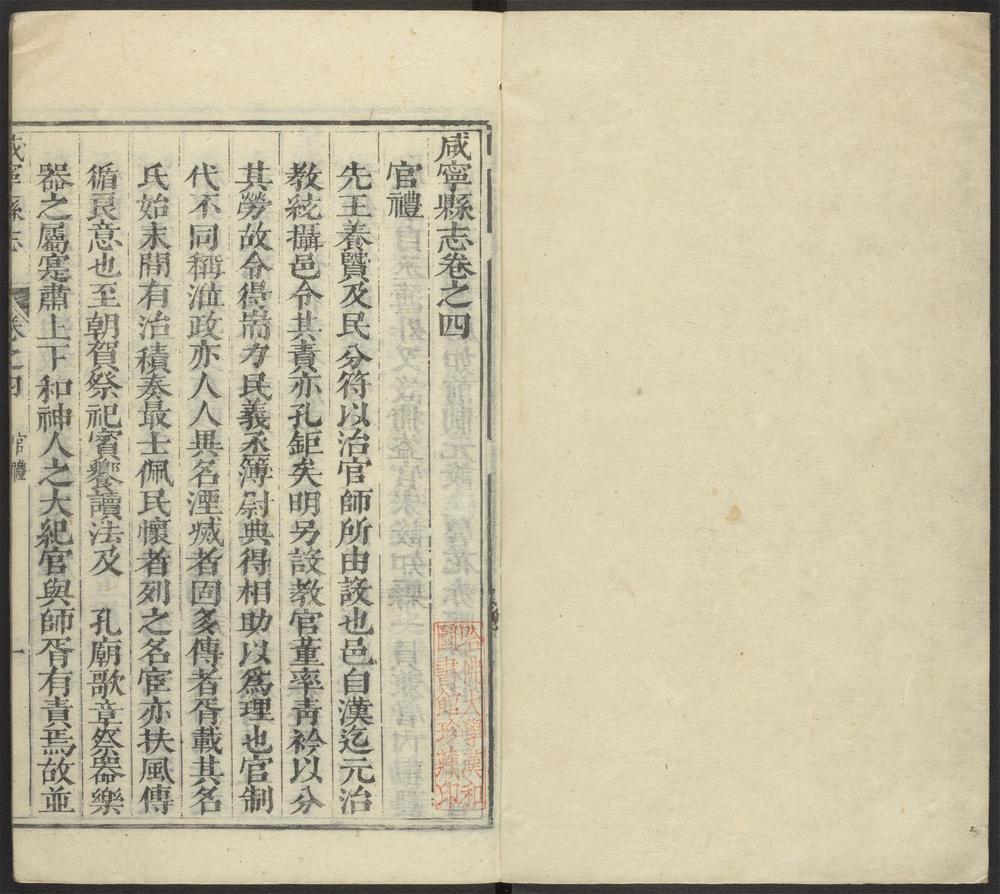 咸寧縣志卷之四
官禮
先王養賢及民分符以治官師所由設也邑自漢迄元治
教統攝邑令其責亦孔鉅矣明另設教官董率青衿以分
其勞故令得耑力民義丞簿尉典得相助以爲理也官制
代不同稱涖政亦人人異名湮滅者固多傳者胥載其名
氏始末間有治積奏最士佩民懷者列之名宦亦扶風傳
循良意也至朝賀祭祀賓饗讀法及 孔廟歌章祭器樂
器之屬寔肅上下和神人之大紀官與師胥有責焉故並
咸寧縣志 卷之四 官禮 一
哈佛大學漢和
圖書館珍藏印